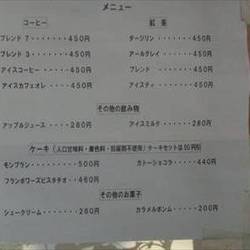 メニュー
コーヒー
ブレンド 7・・・・・・・450円
ブレンド 3・・・・・・・450円
アイスコーヒー・・・・・450円
アイスカフェオレ・・・・450円
紅茶
ダージリン・・・・・・450円
アールグレイ・・・・・450円
ブレンド・・・・・・・450円
アイスティ・・・・・・450円
その他の飲み物
アップルジュース・・・・280円
アイスミルク・・・・・280円
ケーキ(人口甘味料・着色料・防腐剤不使用)ケーキセットは50円引
モンブラン・・・・・・・500円
ガトーショコラ・・・・440円
フランボワーズピスタチオ・・460円
その他のお菓子
シュークリーム・・・・・260円
カラメルボンム・・・・200円